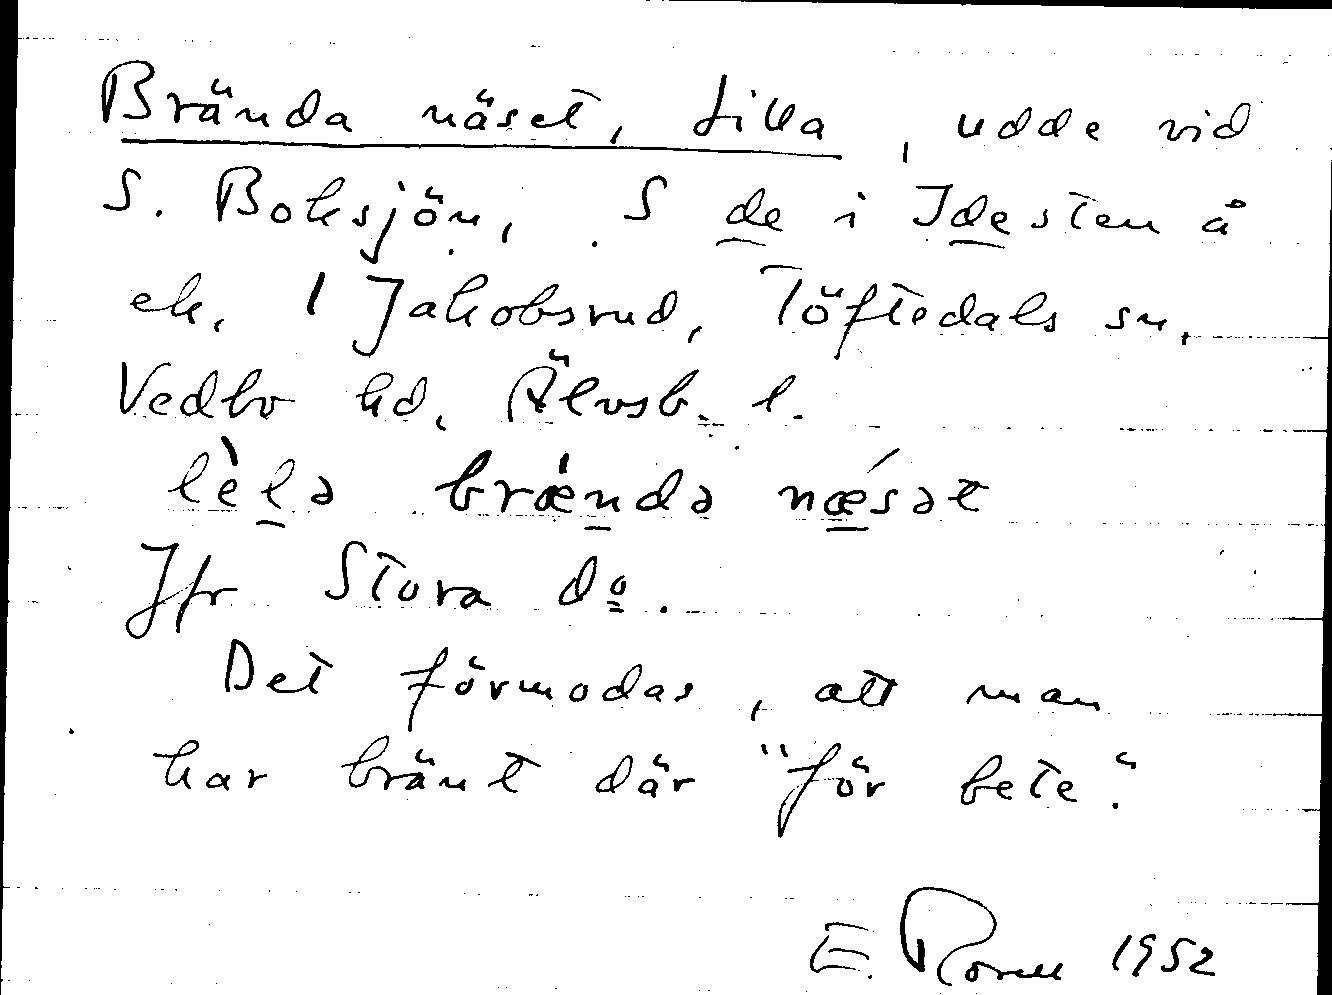 Brända näset, Lilla, udde vid
S. Boksjön, S de i Idesten å
ek. 1 Jakobsrud, Töftedals sn,
Vedbo hd, Älvsb. l.
lèlə brǽndə nǽsət
Jfr Stora dº.
Det förmodas, att man
har bränt där "för bete".
E. 1952